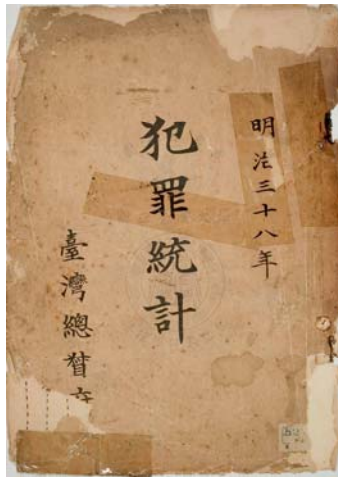 明治三十八年
犯罪統計
臺灣總督府